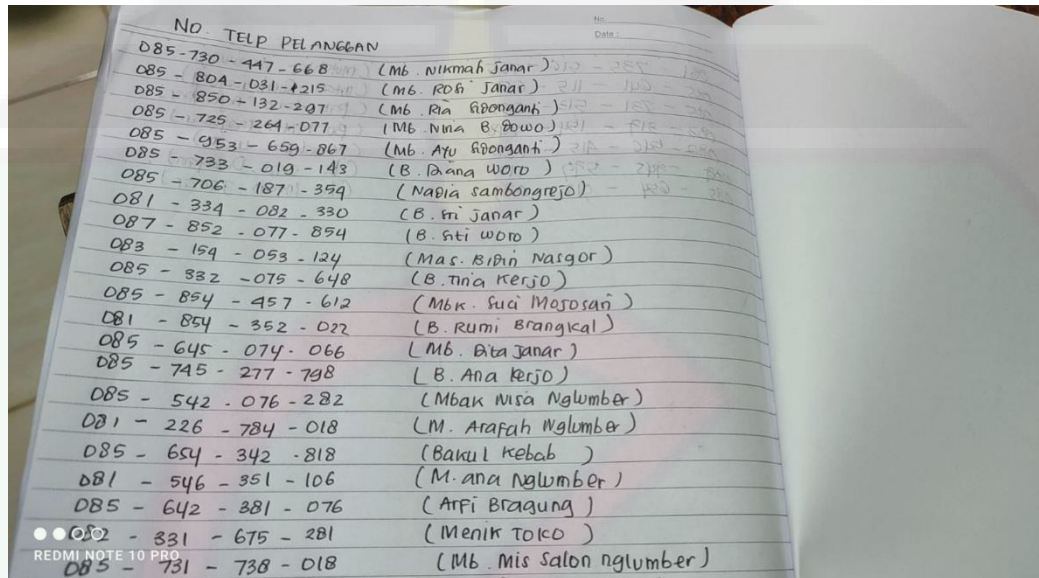 No.
Date :
NO. TELP PELANGGAN
085-730-447-668 (Mb. Nikmah Janar)
085-804-031-1215 (Mb. Rofi Janar)
085-850-132-297 (Mb. Ria)
085-725-264-077 (Mb. Nina B. Dowo)
085-953-659-867 (Mb. Ayu)
085-733-019-143 (B. Diana Woro)
085-706-187-354 (Nadia Sambongrejo)
081-334-082-330 (B. Sri Janar)
087-852-077-854 (B. Siti Woro)
083-154-053-124 (Mas. Bidin Nasgor)
085-332-075-648 (B. Tina Kerjo)
085-854-457-612 (Mbk. Suci Mojosari)
081-854-352-022 (B. Rumi Brangkal)
085-645-074-066 (Mb. Dita Janar)
085-745-277-798 (B. Ana Kerjo)
085-542-076-282 (Mbak Nisa Nglumber)
081-226-784-018 (M. Arafah Nglumber)
085-654-342-818 (Bakul Kebab)
081-546-351-106 (M. ana Nglumber)
085-642-381-076 (Arfi Bragung)
082-331-675-281 (Menik Toko)
085-731-738-018 (Mb. Mis Salon nglumber)
REDMI NOTE 10 PRO